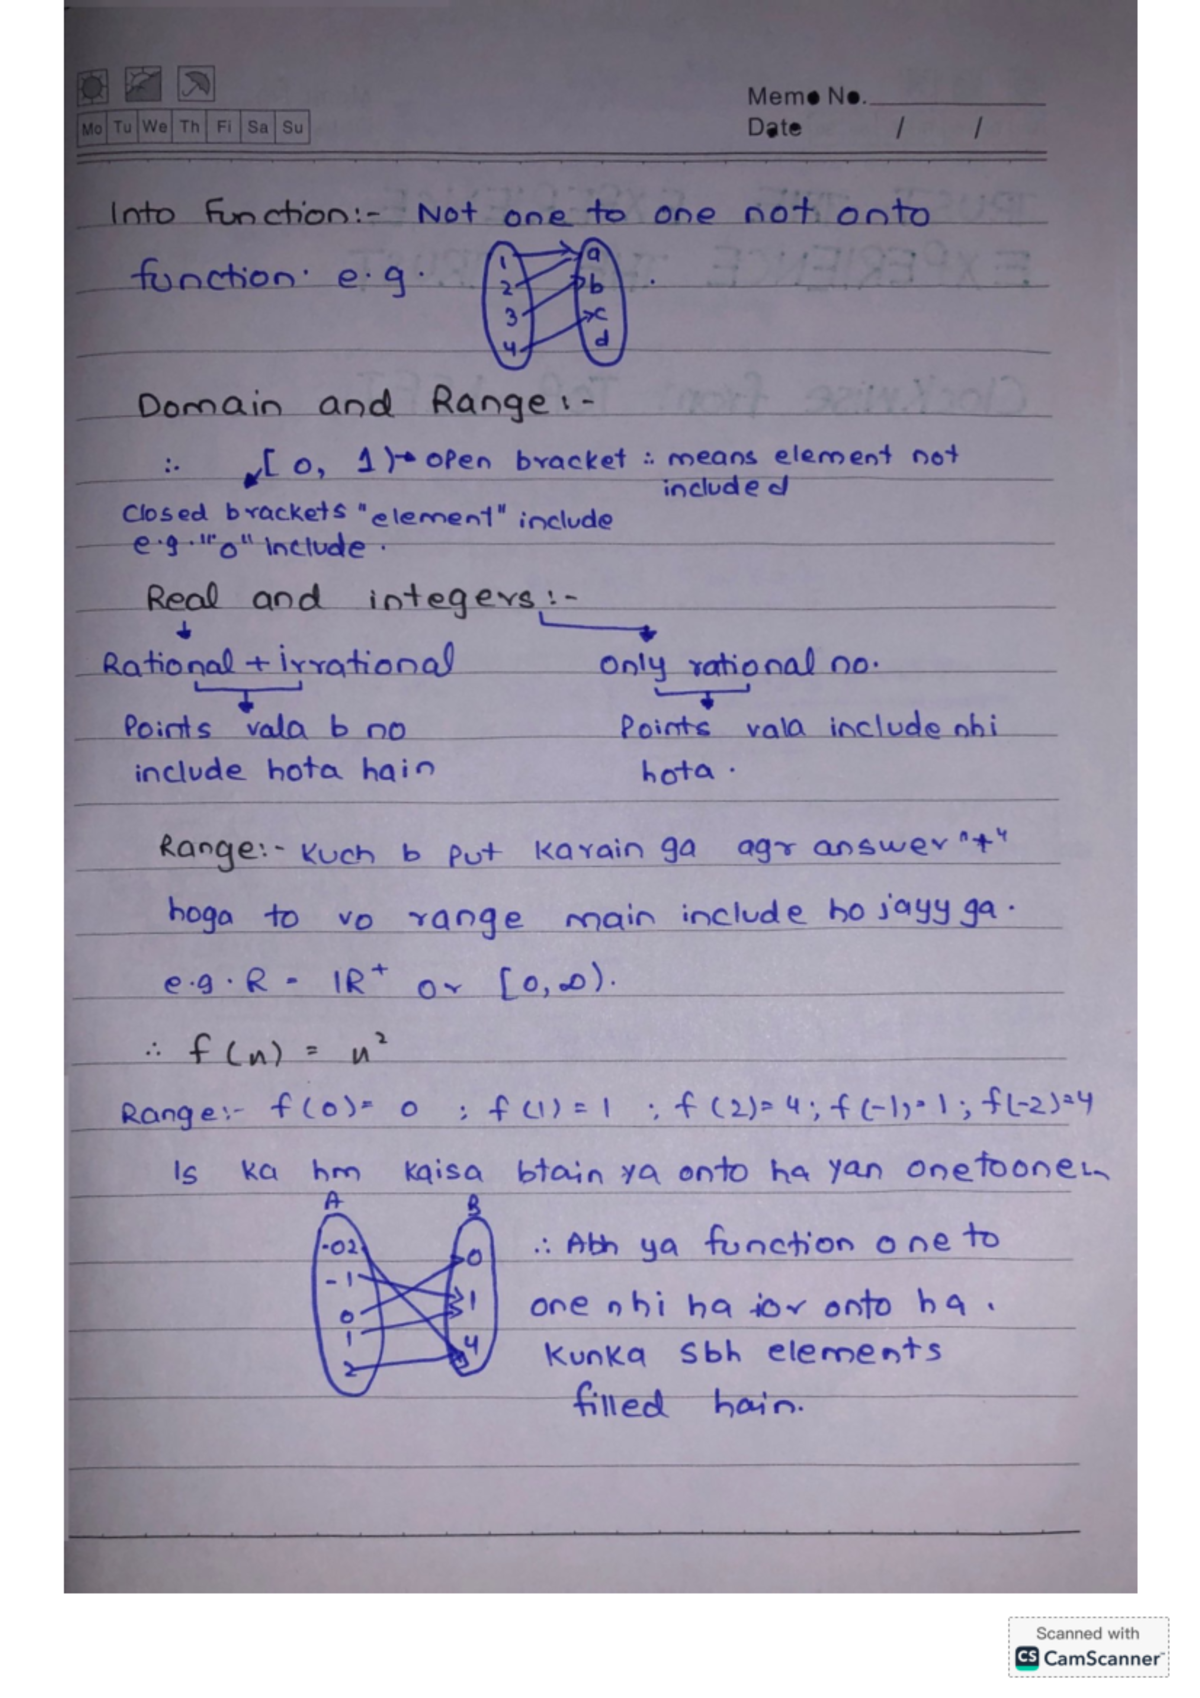 Mo Tu We Th Fi Sa Su
Memo No.
Date / /
Into Function:- Not one to one not onto
function. e.g.
1 a
2 b
3 c
4 d
Domain and Range:-
∴ [0, 1) → open bracket ∴ means element not
included
Closed brackets "element" include
e.g. "0" include.
Real and integers:-
Rational + irrational
Only rational no.
Points vala b no
include hota hain
Points vala include nhi
hota.
Range:- Kuch b put karain ga agr answer "+"
hoga to vo range main include ho jayy ga.
e.g. R = IR⁺ or [0, ∞).
∴ f(n) = n²
Range:- f(0)= 0 ; f(1) = 1 ; f(2)= 4; f(-1)=1; f(-2)=4
Is ka hm kaisa btain ya onto ha yan onetoone
A B
-02 0
-1 1
0 4
1
2
∴ Abh ya function one to
one nhi ha ior onto ha.
Kunka sbh elements
filled hain.
Scanned with
CS CamScanner